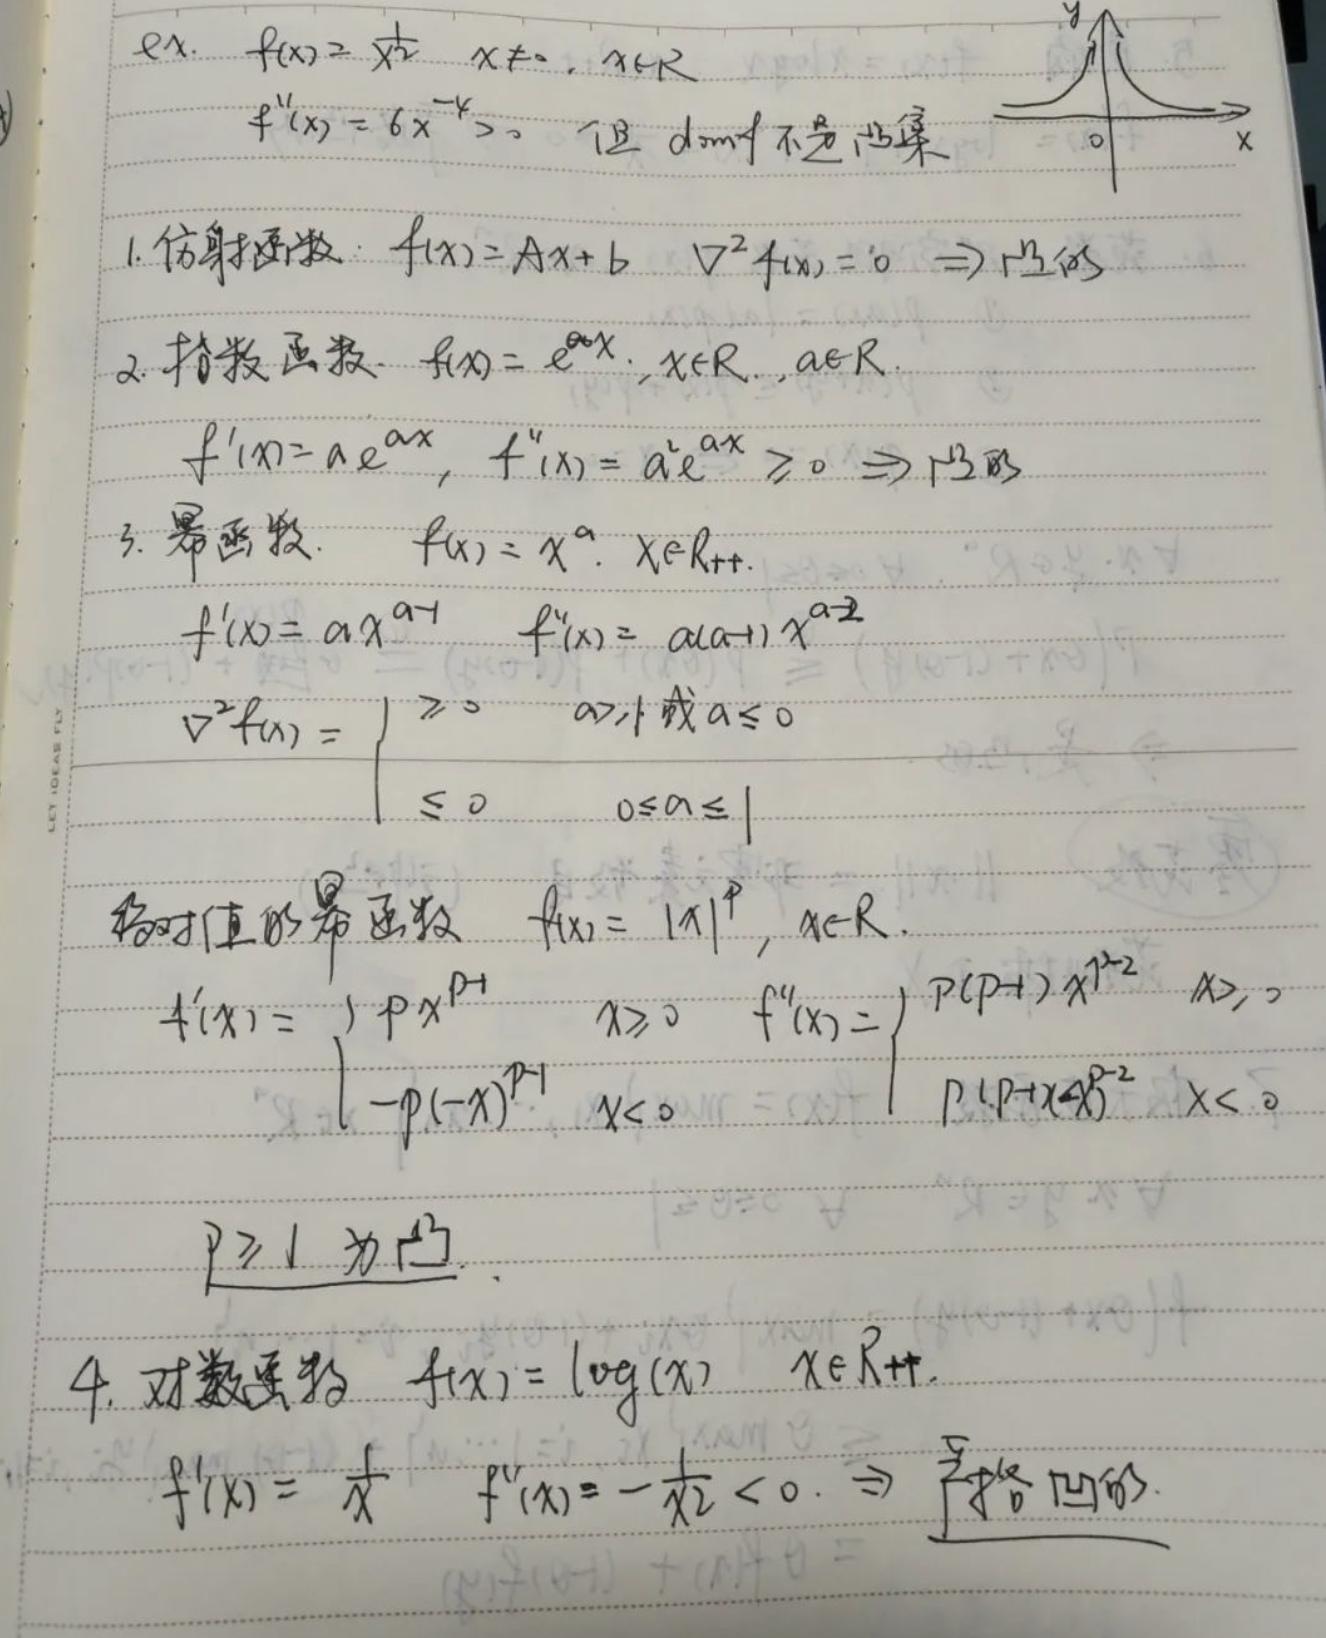 ex. f(x) = 1/x² x≠0, x∈R
f''(x) = 6x⁻⁴ > 0 但 domf 不是凸集
y
0
x
1. 仿射函数. f(x) = Ax + b ∇²f(x) = 0 ⇒ 凸的
2. 指数函数. f(x) = e^{ax}, x∈R, a∈R.
f'(x) = ae^{ax}, f''(x) = a²e^{ax} ≥ 0 ⇒ 凸的
3. 幂函数. f(x) = x^a. x∈R++.
f'(x) = ax^{a-1} f''(x) = a(a-1)x^{a-2}
∇²f(x) = { ≥ 0 a≥1 或 a ≤ 0
≤ 0 0≤a≤1
LET IDEAS FLY
绝对值的幂函数 f(x) = |x|^p, x∈R.
f'(x) = { px^{p-1} x≥0 f''(x) = { p(p-1)x^{p-2} x≥0
-p(-x)^{p-1} x<0 p(p-1)(-x)^{p-2} x<0
p≥1 为凸.
4. 对数函数 f(x) = log(x) x∈R++.
f'(x) = 1/x f''(x) = -1/x² < 0. ⇒ 严格凹的.